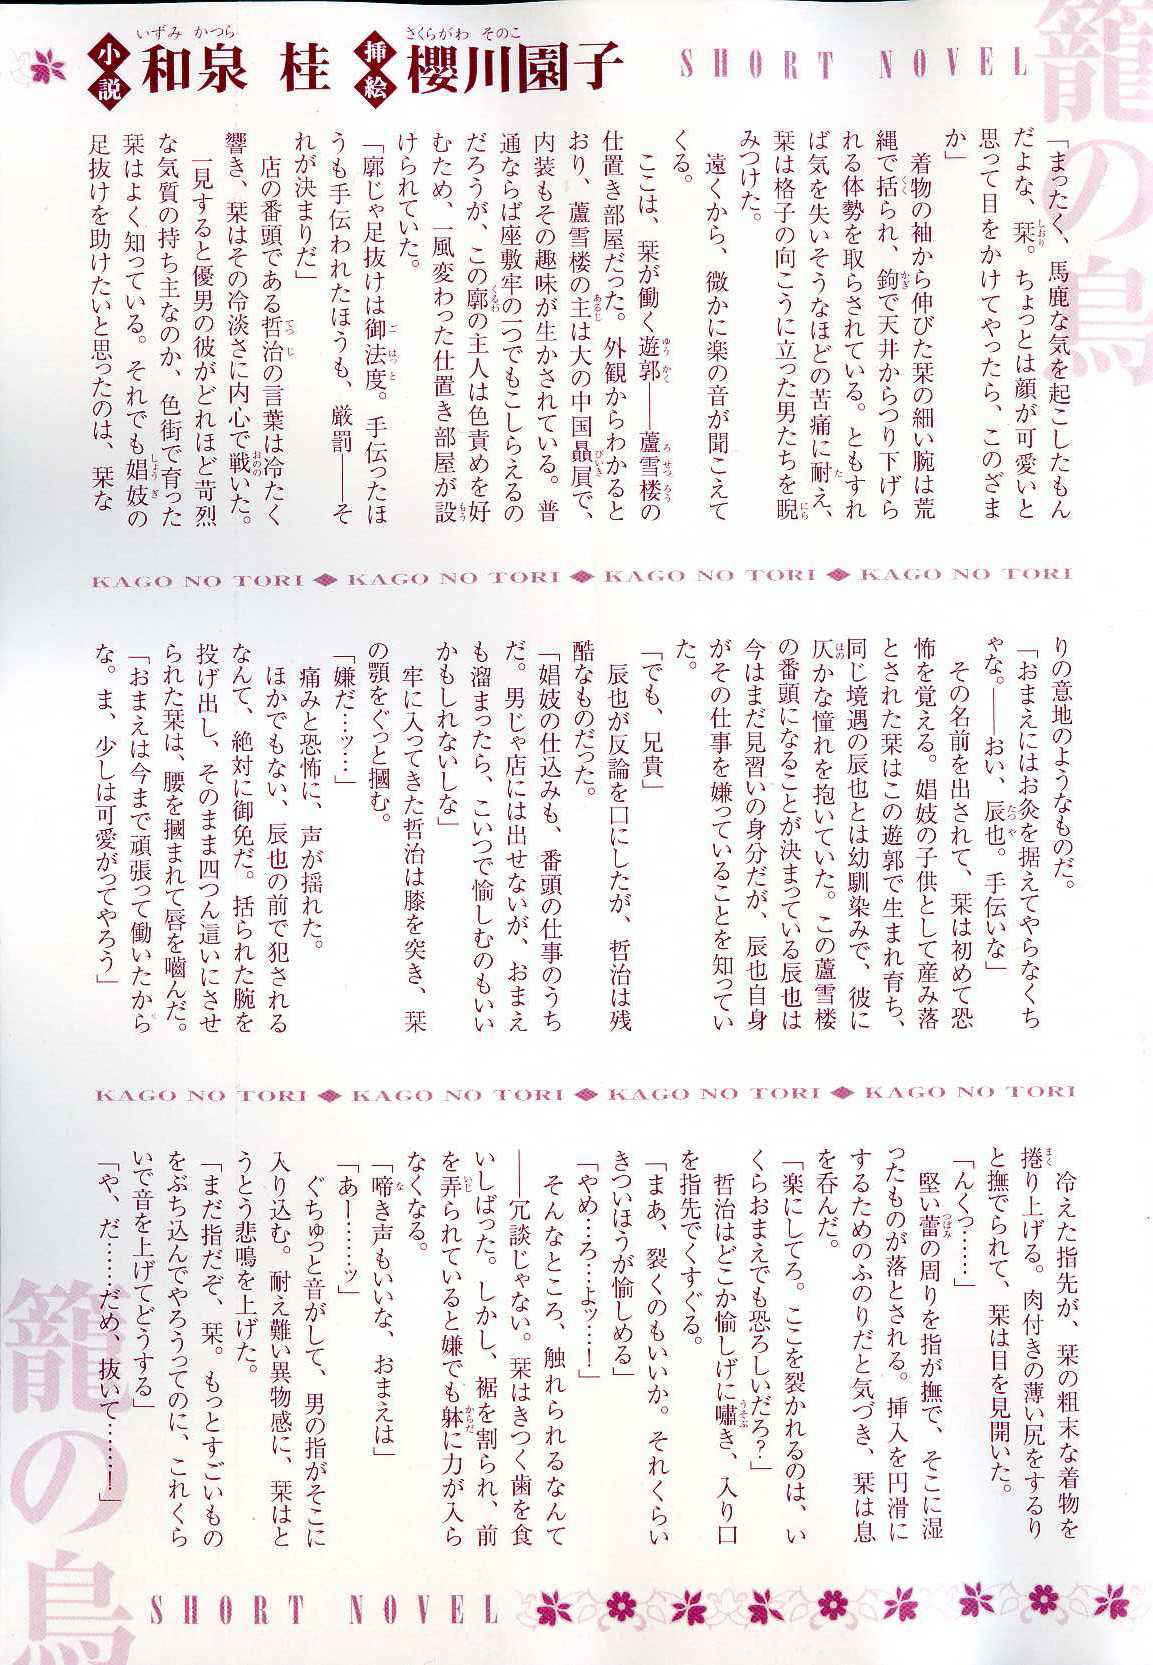 小説 和泉 桂 挿絵 櫻川園子
いずみ かつら さくらがわ そのこ
SHORT NOVEL
籠の鳥
「まったく、馬鹿な気を起こしたもん
だよな、栞。ちょっとは顔が可愛いと
思って目をかけてやったら、このざま
か」
着物の袖から伸びた栞の細い腕は荒
縄で括られ、鉤で天井からつり下げら
れる体勢を取らされている。ともすれ
ば気を失いそうなほどの苦痛に耐え、
栞は格子の向こうに立った男たちを睨
みつけた。
遠くから、微かに楽の音が聞こえて
くる。
ここは、栞が働く遊郭――蘆雪楼の
仕置き部屋だった。外観からわかると
おり、蘆雪楼の主は大の中国贔屓で、
内装もその趣味が生かされている。普
通ならば座敷牢の一つでもこしらえるの
だろうが、この廓の主人は色責めを好
むため、一風変わった仕置き部屋が設
けられていた。
「廓じゃ足抜けは御法度。手伝ったほ
うも手伝われたほうも、厳罰――そ
れが決まりだ」
店の番頭である哲治の言葉は冷たく
響き、栞はその冷淡さに内心で戦いた。
一見すると優男の彼がどれほど苛烈
な気質の持ち主なのか、色街で育った
栞はよく知っている。それでも娼妓の
足抜けを助けたいと思ったのは、栞な
KAGO NO TORI◆KAGO NO TORI◆KAGO NO TORI◆KAGO NO TORI
りの意地のようなものだ。
「おまえにはお灸を据えてやらなくち
ゃな。――おい、辰也。手伝いな」
その名前を出されて、栞は初めて恐
怖を覚える。娼妓の子供として産み落
とされた栞はこの遊郭で生まれ育ち、
同じ境遇の辰也とは幼馴染みで、彼に
仄かな憧れを抱いていた。この蘆雪楼
の番頭になることが決まっている辰也は
今はまだ見習いの身分だが、辰也自身
がその仕事を嫌っていることを知ってい
た。
「でも、兄貴」
辰也が反論を口にしたが、哲治は残
酷なものだった。
「娼妓の仕込みも、番頭の仕事のうち
だ。男じゃ店には出せないが、おまえ
も溜まったら、こいつで愉しむのもいい
かもしれないしな」
牢に入ってきた哲治は膝を突き、栞
の顎をぐっと摑む。
「嫌だ…ッ…」
痛みと恐怖に、声が揺れた。
ほかでもない、辰也の前で犯される
なんて、絶対に御免だ。括られた腕を
投げ出し、そのまま四つん這いにさせ
られた栞は、腰を摑まれて唇を嚙んだ。
「おまえは今まで頑張って働いたから
な。ま、少しは可愛がってやろう」
KAGO NO TORI◆KAGO NO TORI◆KAGO NO TORI◆KAGO NO TORI
冷えた指先が、栞の粗末な着物を
捲り上げる。肉付きの薄い尻をするり
と撫でられて、栞は目を見開いた。
「んくっ……」
堅い蕾の周りを指が撫で、そこに湿
ったものが落とされる。挿入を円滑に
するためのふのりだと気づき、栞は息
を呑んだ。
「楽にしてろ。ここを裂かれるのは、い
くらおまえでも恐ろしいだろ？」
哲治はどこか愉しげに嘯き、入り口
を指先でくすぐる。
「まあ、裂くのもいいか。それくらい
きついほうが愉しめる」
「やめ…ろ…よッ…！」
そんなところ、触れられるなんて
――冗談じゃない。栞はきつく歯を食
いしばった。しかし、裾を割られ、前
を弄られていると嫌でも躰に力が入ら
なくなる。
「啼き声もいいな、おまえは」
「あー……ッ」
ぐちゅっと音がして、男の指がそこに
入り込む。耐え難い異物感に、栞はと
うとう悲鳴を上げた。
「まだ指だぞ、栞。もっとすごいもの
をぶち込んでやろうってのに、これくら
いで音を上げてどうする」
「や、だ……だめ、抜いて……！」
籠の鳥
SHORT NOVEL